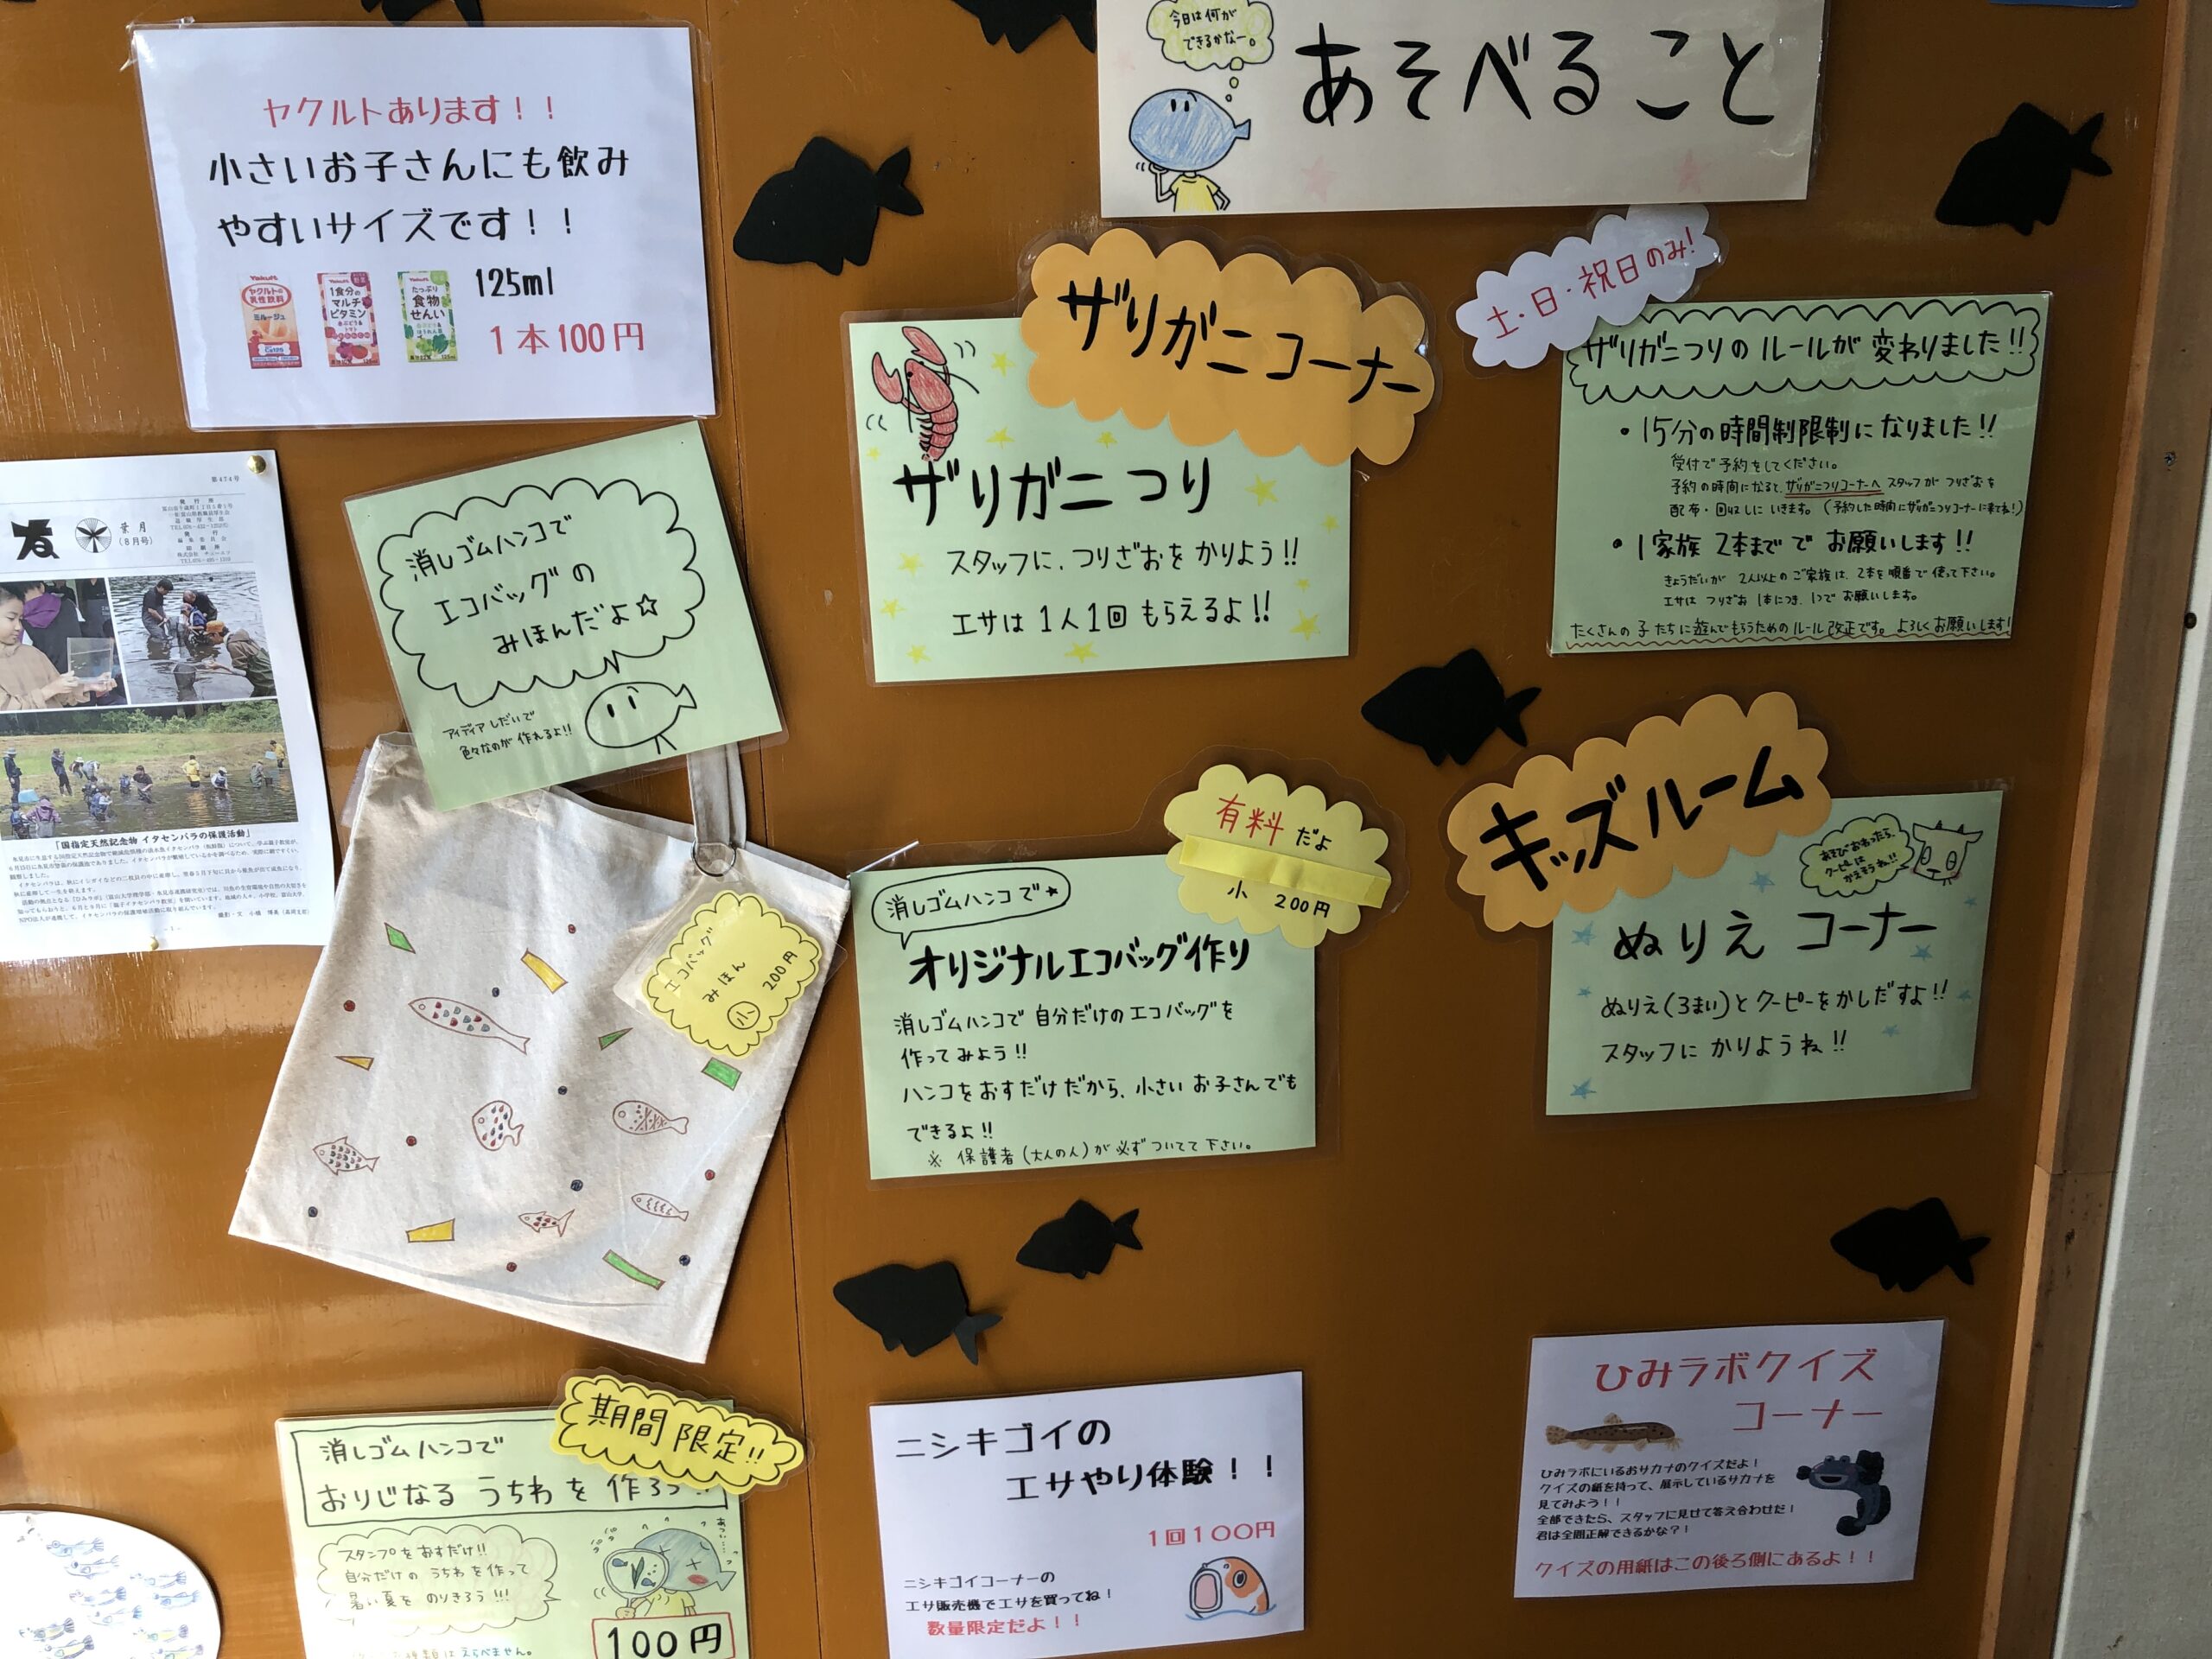 今日は何が
できるかなー。
あそべること
ヤクルトあります！！
小さいお子さんにも飲み
やすいサイズです！！
125ml
1本100円
Yakult
ヤクルトの
乳性飲料
ミルージュ
Yakult
1食分の
マルチ
ビタミン
Yakult
たっぷり
食物
せんい
ザリガニコーナー
ザリガニつり
スタッフに、つりざおをかりよう!!
エサは1人1回もらえるよ!!
土・日・祝日のみ!
ザリガニつりのルールが変わりました!!
・15分の時間制限制になりました!!
受付で予約をしてください。
予約の時間になると、ザリガニつりコーナーへスタッフがつりざおを
配布・回収しにいきます。(予約した時間にザリガニつりコーナーに来てね!)
・1家族2本まででお願いします!!
きょうだいが2人以上のご家族は、2本を順番で使って下さい。
エサはつりざお1本につき、1つでお願いします。
たくさんの子たちに遊んでもらうためのルール改正です。よろしくお願いします!
第474号
葉月
(8月号)
「国指定天然記念物 イタセンパラの保護活動」
消しゴムハンコで
エコバッグの
みほんだよ☆
アイディアしだいで
色々なのが作れるよ!!
エコバッグ
みほん
小 200円
有料だよ
小 200円
消しゴムハンコで★
オリジナルエコバッグ作り
消しゴムハンコで自分だけのエコバッグを
作ってみよう!!
ハンコをおすだけだから、小さいお子さんでも
できるよ!!
※ 保護者(大人の人)が必ずついてて下さい。
キッズルーム
あそびおわったら、
クーピーは
かえそうね!!
ぬりえコーナー
ぬりえ(3まい)とクーピーをかしだすよ!!
スタッフにかりようね!!
期間限定!!
消しゴムハンコで
おりじなるうちわを作ろう!!
スタンプをおすだけ!!
自分だけのうちわを作って
暑い夏をのりきろう!!!
100円
ニシキゴイの
エサやり体験！！
1回100円
ニシキゴイコーナーの
エサ販売機でエサを買ってね！
数量限定だよ！！
ひみラボクイズ
コーナー
ひみラボにいるおサカナのクイズだよ！
クイズの紙を持って、展示しているサカナを
見てみよう！！
全部できたら、スタッフに見せて答え合わせだ！
君は全問正解できるかな？！
クイズの用紙はこの後ろ側にあるよ！！